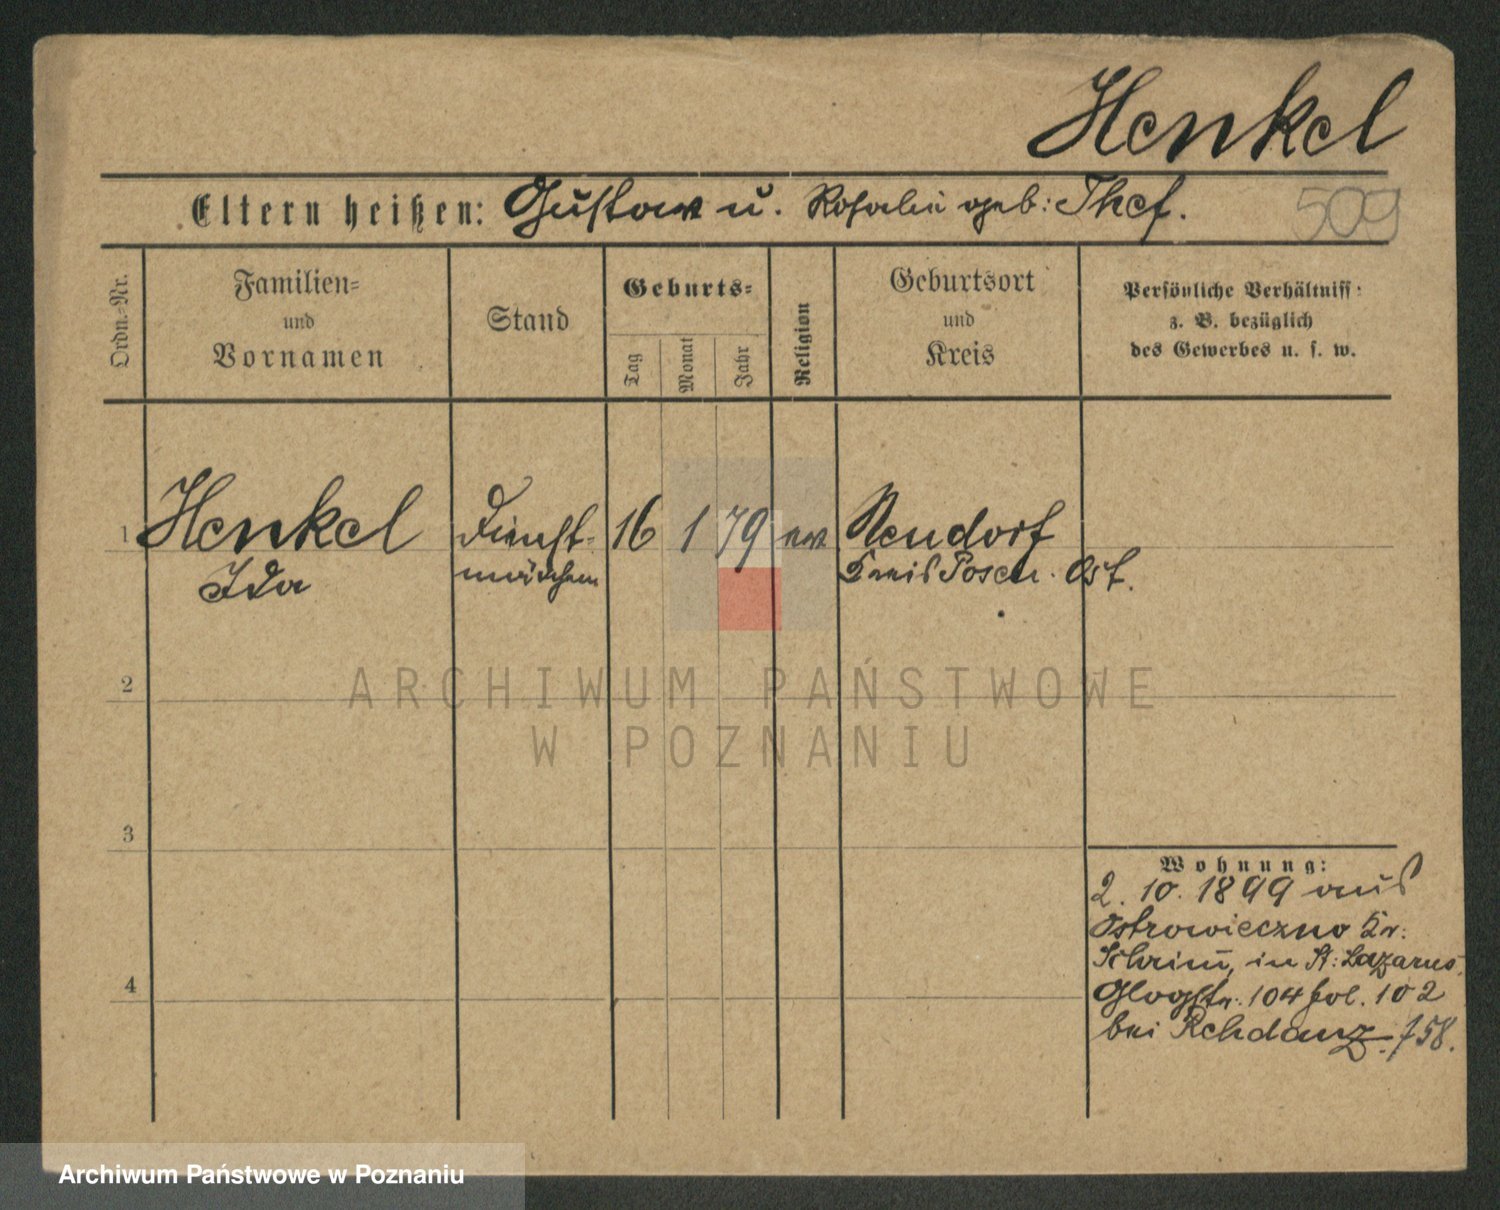 Henkel
Eltern heißen: Gustav u. Rosalie geb: Thes.
509
Ordn.-Nr.
Familien-
und
Vornamen
Stand
Geburts-
Tag
Monat
Jahr
Religion
Geburtsort
und
Kreis
Persönliche Verhältniss:
z. B. bezüglich
des Gewerbes u. s. w.
1
Henkel
Ida
Dienst-
mädchen
16
1
79
ev
Neudorf
Kreis Posen. Ost.
2
ARCHIWUM PAŃSTWOWE
W POZNANIU
3
4
Wohnung:
2. 10. 1899 aus
Ostrowieczno Kr:
Schrimm, in St: Lazarus
Glogstr. 104 pol. 102
bei Rehdanz. f58.
Archiwum Państwowe w Poznaniu